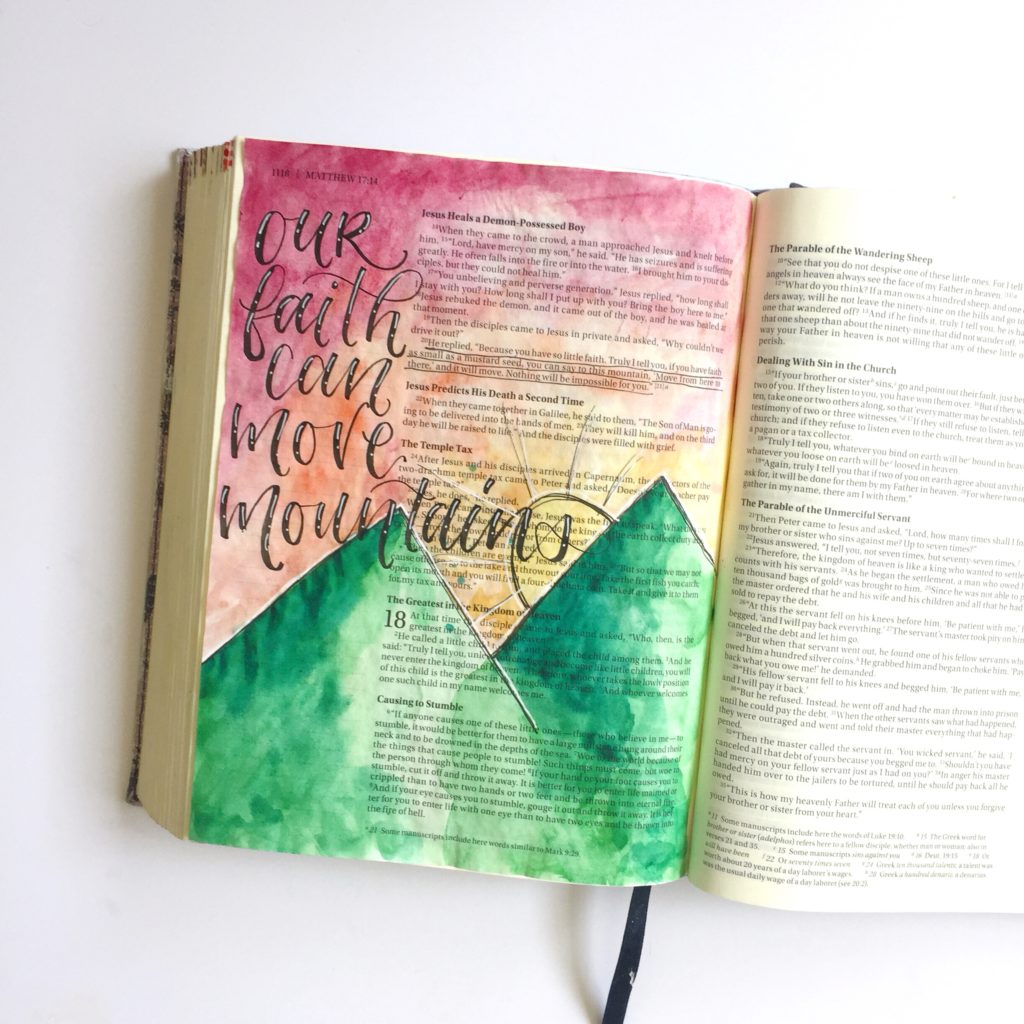 1118 | MATTHEW 17:14
our
faith
can
move
mountains
Jesus Heals a Demon-Possessed Boy
14When they came to the crowd, a man approached Jesus and knelt before
him. 15"Lord, have mercy on my son," he said. "He has seizures and is suffering
greatly. He often falls into the fire or into the water. 16I brought him to your dis
ciples, but they could not heal him."
17"You unbelieving and perverse generation," Jesus replied, "how long shall
I stay with you? How long shall I put up with you? Bring the boy here to me."
Jesus rebuked the demon, and it came out of the boy, and he was healed at
that moment.
19Then the disciples came to Jesus in private and asked, "Why couldn't we
drive it out?"
20He replied, "Because you have so little faith. Truly I tell you, if you have faith
as small as a mustard seed, you can say to this mountain, 'Move from here to
there,' and it will move. Nothing will be impossible for you."
Jesus Predicts His Death a Second Time
22When they came together in Galilee, he said to them, "The Son of Man is go-
ing to be delivered into the hands of men. 23They will kill him, and on the third
day he will be raised to life." And the disciples were filled with grief.
The Temple Tax
24After Jesus and his disciples arrived in Capernaum, the collectors of the
two-drachma temple tax came to Peter and asked, "Doesn't your teacher pay
the temple tax?"
he does," he replied.
Jesus was the first to speak. "What do you
the earth collect duty and
the children are exempt," Jesus said to him. "But so that we may not
cause offense, go to the lake and throw out your line. Take the first fish you catch;
open its mouth and you will find a four-drachma coin. Take it and give it to them
for my tax and yours."
The Greatest in the Kingdom of Heaven
18 At that time the disciples came to Jesus and asked, "Who, then, is the
greatest in the kingdom of heaven?"
2He called a little child to him, and placed the child among them. 3And he
said: "Truly I tell you, unless you change and become like little children, you will
never enter the kingdom of heaven. 4Therefore, whoever takes the lowly position
of this child is the greatest in the kingdom of heaven. 5And whoever welcomes
one such child in my name welcomes me.
Causing to Stumble
6"If anyone causes one of these little ones—those who believe in me—to
stumble, it would be better for them to have a large millstone hung around their
neck and to be drowned in the depths of the sea. 7Woe to the world because of
the things that cause people to stumble! Such things must come, but woe to
the person through whom they come! 8If your hand or your foot causes you to
stumble, cut it off and throw it away. It is better for you to enter life maimed or
crippled than to have two hands or two feet and be thrown into eternal fire.
9And if your eye causes you to stumble, gouge it out and throw it away. It is bet
ter for you to enter life with one eye than to have two eyes and be thrown into
the fire of hell.
a 21 Some manuscripts include here words similar to Mark 9:29.
The Parable of the Wandering Sheep
10"See that you do not despise one of these little ones. For I tell
angels in heaven always see the face of my Father in heaven.
12"What do you think? If a man owns a hundred sheep, and one
ders away, will he not leave the ninety-nine on the hills and go to
one that wandered off? 13And if he finds it, truly I tell you, he is
that one sheep than about the ninety-nine that did not wander off.
way your Father in heaven is not willing that any of these little
perish.
Dealing With Sin in the Church
15"If your brother or sister sins, go and point out their fault, just be
two of you. If they listen to you, you have won them over. 16But if they
ten, take one or two others along, so that 'every matter may be establish
testimony of two or three witnesses.' 17If they still refuse to listen, tell
church; and if they refuse to listen even to the church, treat them as you
a pagan or a tax collector.
18"Truly I tell you, whatever you bind on earth will be bound in heaven,
whatever you loose on earth will be loosed in heaven.
19"Again, truly I tell you that if two of you on earth agree about anything
ask for, it will be done for them by my Father in heaven. 20For where two or
gather in my name, there am I with them."
The Parable of the Unmerciful Servant
21Then Peter came to Jesus and asked, "Lord, how many times shall I fo
my brother or sister who sins against me? Up to seven times?"
22Jesus answered, "I tell you, not seven times, but seventy-seven times.
23"Therefore, the kingdom of heaven is like a king who wanted to settle
counts with his servants. 24As he began the settlement, a man who owed
ten thousand bags of gold was brought to him. 25Since he was not able to
the master ordered that he and his wife and his children and all that he had
sold to repay the debt.
26"At this the servant fell on his knees before him. 'Be patient with me,'
begged, 'and I will pay back everything.' 27The servant's master took pity on him
canceled the debt and let him go.
28"But when that servant went out, he found one of his fellow servants who
owed him a hundred silver coins. He grabbed him and began to choke him. 'Pay
back what you owe me!' he demanded.
29"His fellow servant fell to his knees and begged him, 'Be patient with me,
and I will pay it back.'
30"But he refused. Instead, he went off and had the man thrown into prison
until he could pay the debt. 31When the other servants saw what had happened,
they were outraged and went and told their master everything that had hap
pened.
32"Then the master called the servant in. 'You wicked servant,' he said, 'I
canceled all that debt of yours because you begged me to. 33Shouldn't you have
had mercy on your fellow servant just as I had on you?' 34In anger his master
handed him over to the jailers to be tortured, until he should pay back all he
owed.
35"This is how my heavenly Father will treat each of you unless you forgive
your brother or sister from your heart."
11 Some manuscripts include here the words of Luke 19:10. 15 The Greek word for
brother or sister (adelphos) refers here to a fellow disciple, whether man or woman; also in
verses 21 and 35. 15 Some manuscripts sins against you 16 Deut. 19:15 18 Or
will have been 22 Or seventy times seven 24 Greek ten thousand talents; a talent was
worth about 20 years of a day laborer's wages. 28 Greek a hundred denarii; a denarius
was the usual daily wage of a day laborer (see 20:2).